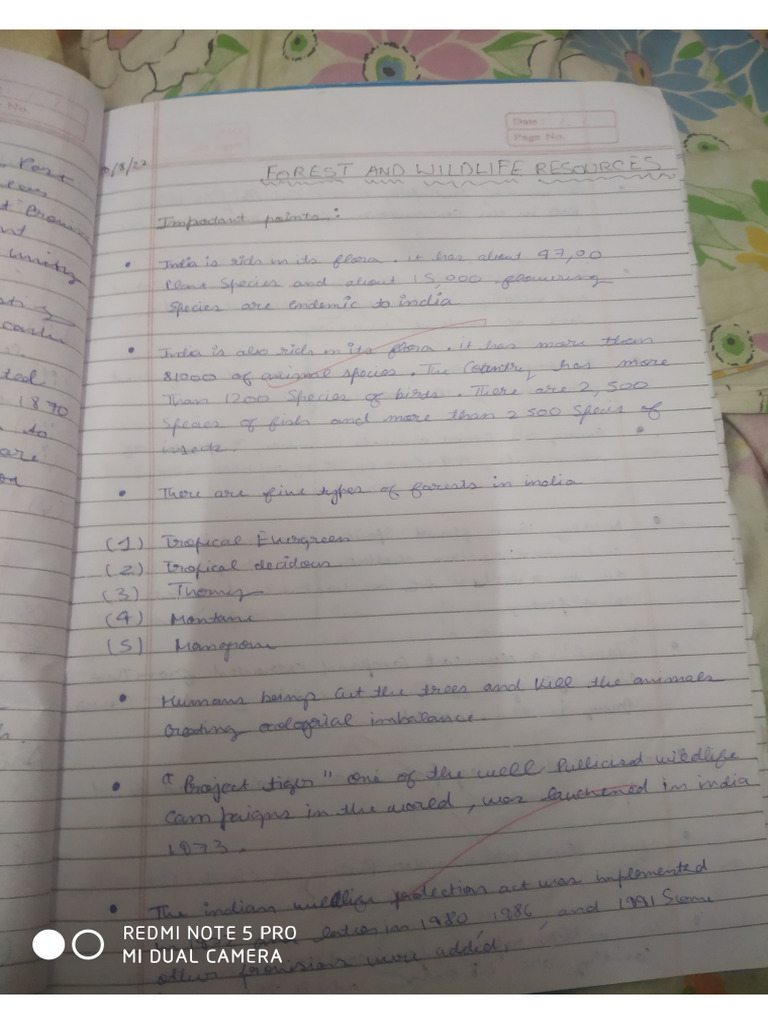 No.
Part
unity
1870
to
are
Date :
Page No.
/8/22
FOREST AND WILDLIFE RESOURCES
Important points :
• India is rich in its flora. it has about 47,00
Plant Species and about 15,000 flowering
Species are endemic to india
• India is also rich in its flora. it has more than
81000 of animal species. The Country has more
Than 1200 Species of birds. There are 2,500
Species of fish and more than 2500 Specis of
insects.
• There are five types of forests in india
(1) Tropical Evergreen
(2) Tropical decidous
(3) Thorny
(4) Montane
(5) Mangrove
• Humans beings Cut the trees and kill the animals
Creating ecological imbalance.
• "Project tiger" one of the well Publicised wildlife
Campaigns in the world, was launched in india
1973.
• The indian wildlife protection act was implemented
in and in 1980 1986, and 1991 Some
other provisions were added.
REDMI NOTE 5 PRO
MI DUAL CAMERA